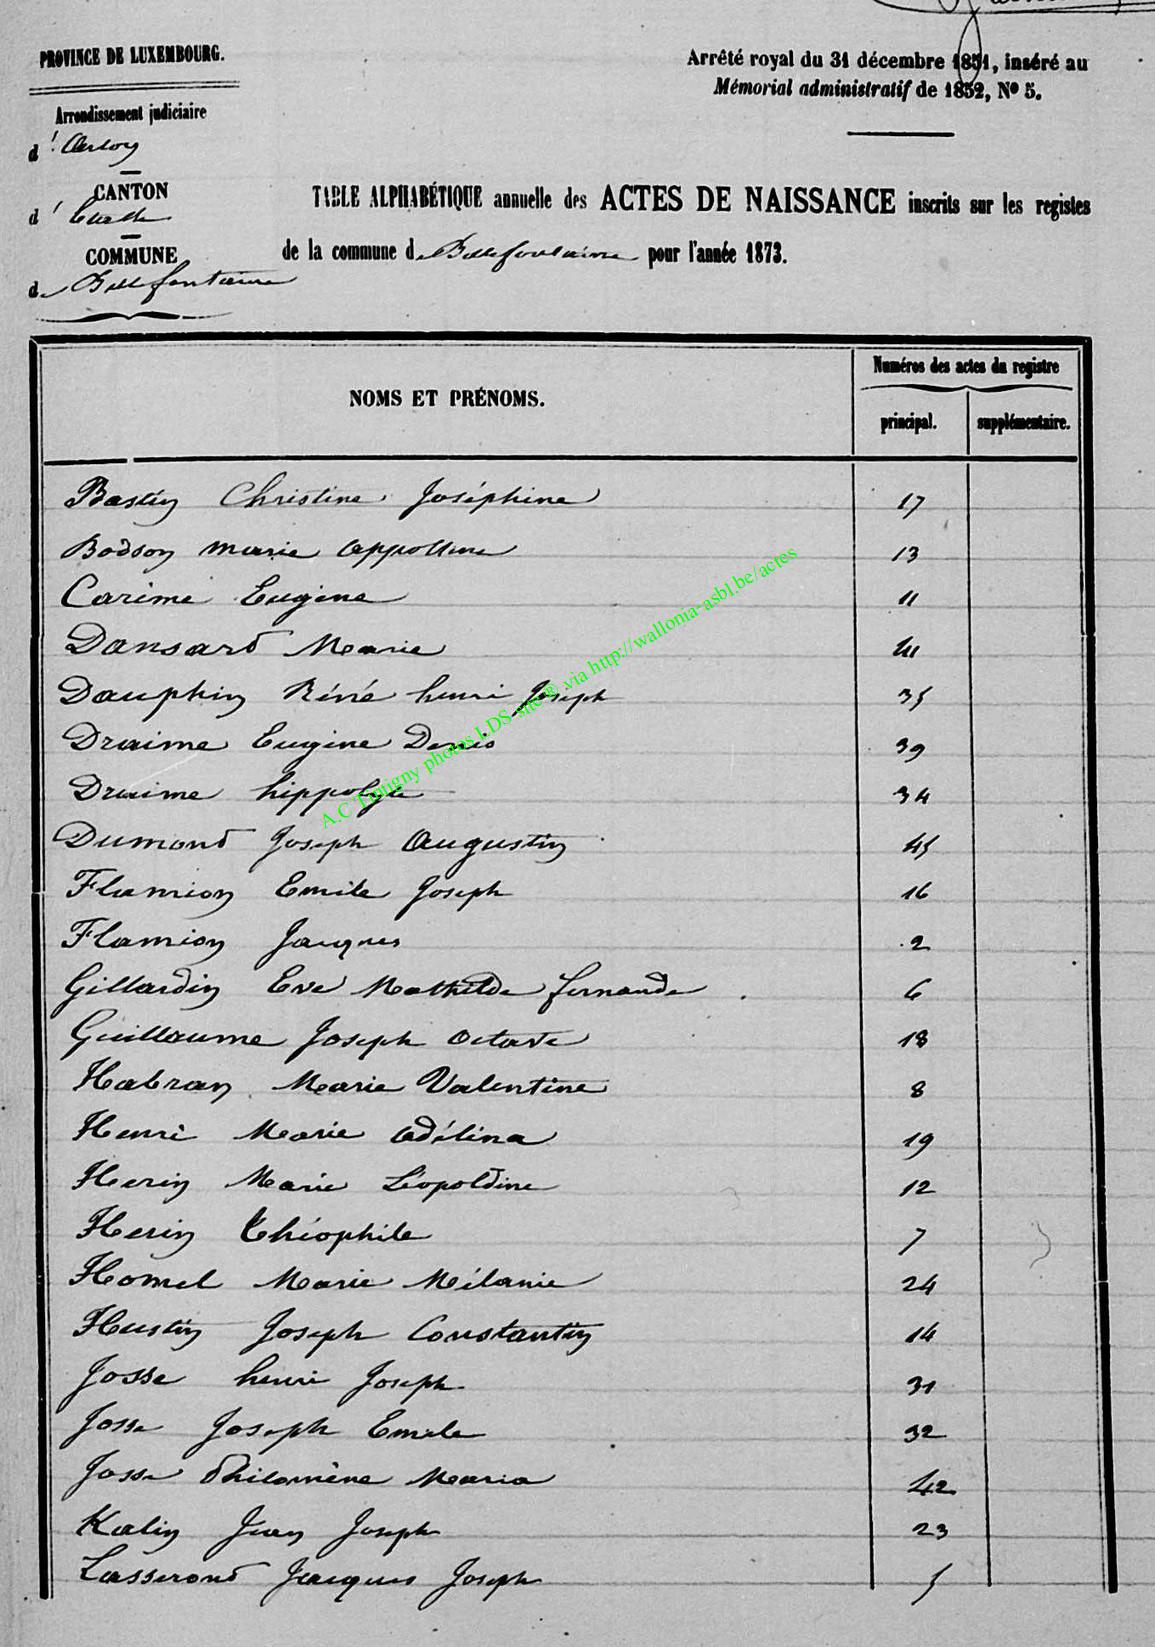 PROVINCE DE LUXEMBOURG.
Arrondissement judiciaire
d'Arlon
CANTON
d'Etalle
COMMUNE
de Bellefontaine
Arrêté royal du 31 décembre 1851, inséré au
Mémorial administratif de 1852, No 5.
TABLE ALPHABÉTIQUE annuelle des ACTES DE NAISSANCE inscrits sur les registes
de la commune de Bellefontaine pour l'année 1873.
NOMS ET PRÉNOMS.
Numéros des actes du registre
principal. supplémentaire.
Bastin Christine Joséphine 17
Bodson marie Appolline 13
Carime Eugène 11
Dansard Marie
Dauphin Réné henri Joseph 35
Draime Eugène Denis 39
Draime hippolyte 34
Dumond Joseph Augustin 45
Flamion Emile Joseph 16
Flamion Jacques 2
Gillardin Eve Mathilde fernande 6
Guillaume Joseph Octave 18
Habran Marie Valentine 8
Henri Marie Adélina 19
Herin Marie Léopoldine 12
Herin théophile 7
Homel Marie Mélanie 24
Hustin Joseph Constantin 14
Josse henri Joseph 31
Josse Joseph Emile 32
Josse Philomène Maria 42
Kalin Jean Joseph 23
Lasserond Jacques Joseph 5
A.C Tintigny photos LDS site © via http://wallonia-asbl.be/actes